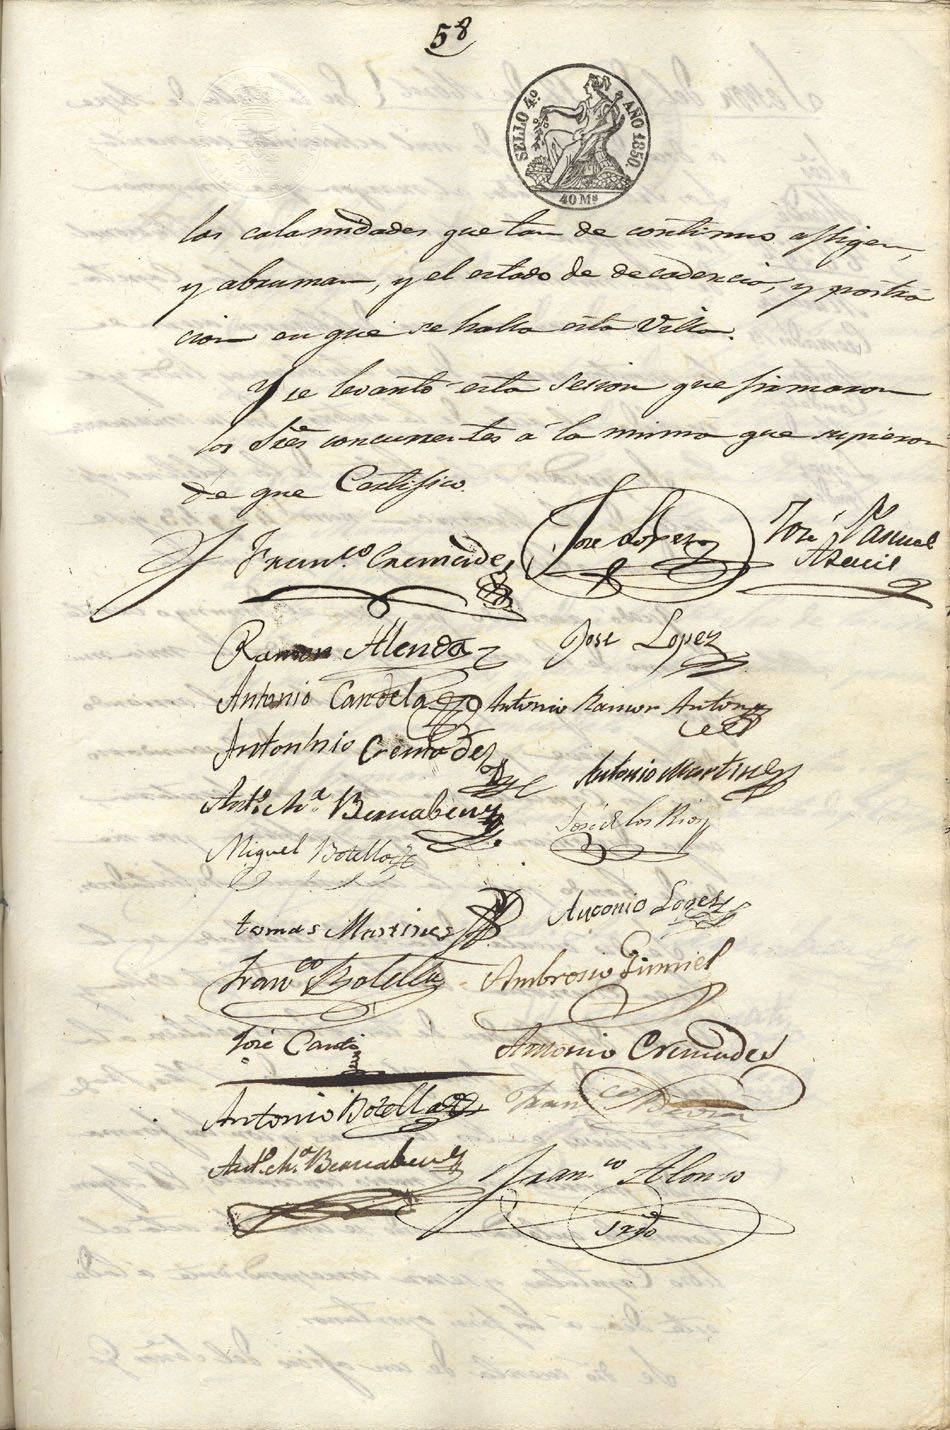 58
SELLO 4º. AÑO 1850.
40 Ms
las calamidades que tan de continuo afligen,
y abruman, y el estado de decadencia, y postra
cion en que se halla esta Villa.
Y se levantó esta Sesion que firmaron
los Sres concurrentes á la misma que supieron
de que Certifico.
Franco. Cremades José Lopez José Pascual
Asencil
Ramon Alenda José Lopez
Antonio Candela Antonio Ramon Antonio
Antonio Cremades
Antonio Martinez
Anto. Ma. Bernabeu José de los Rios
Miguel Botella
tomas Martines Antonio Lopez
Franco Botella Ambrosio Gumiel
José Cantó Antonio Cremades
Antonio Botella Franco
Anto. Ma. Bernabeu Franco Alonso
Srio